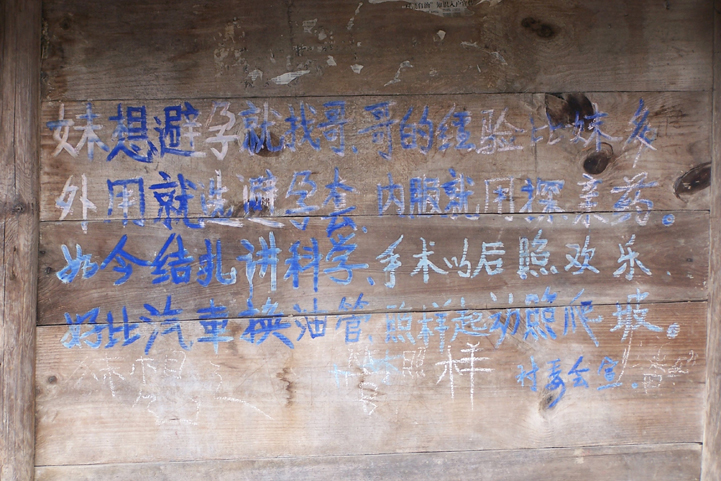 妹想避孕就找哥.哥的经验比妹多
外用就选避孕套.内服就用探亲药。
如今结扎讲科学.手术以后照欢乐.
好比汽车换油管.照样起动照爬坡。
样
村委会宣.